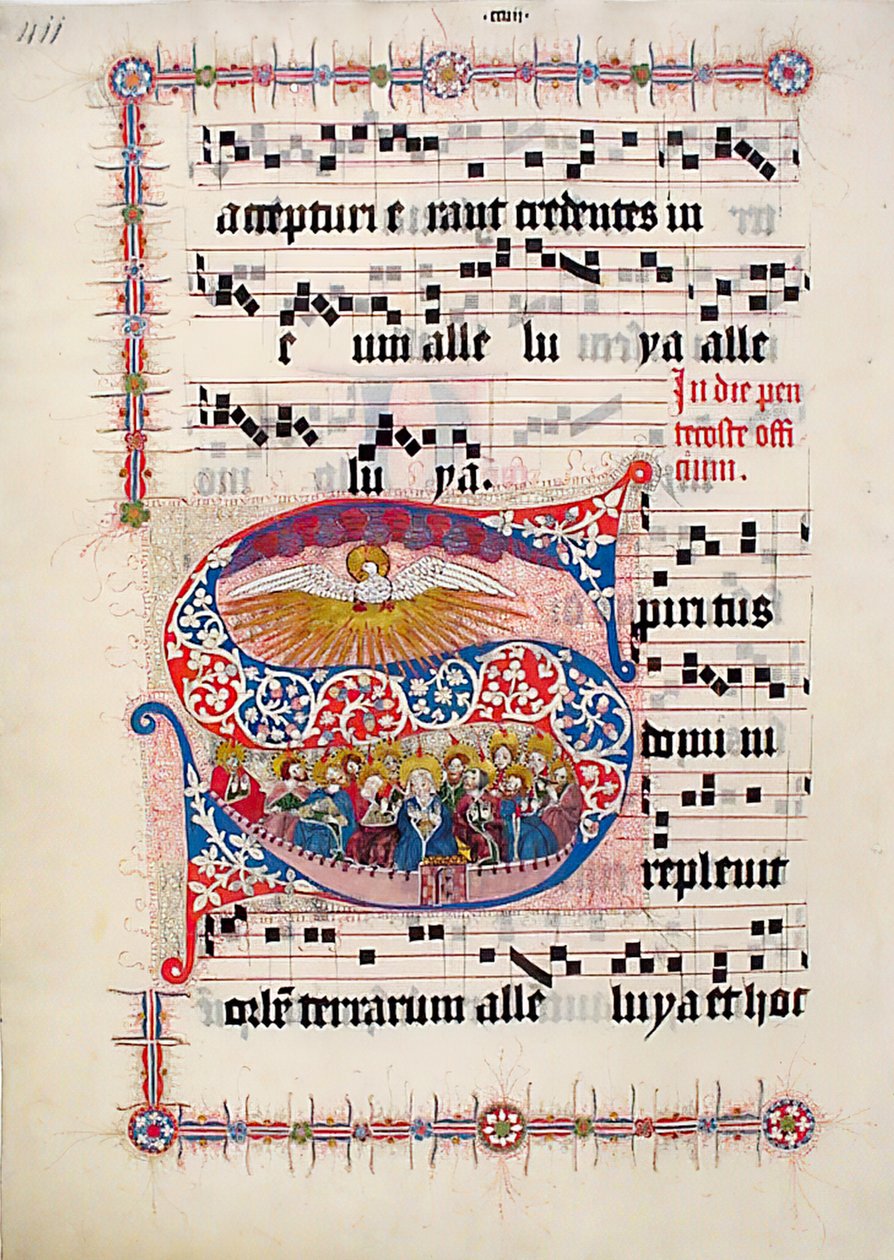 accepturi e raut credentes in
e um alle lu ya alle
lu ya.
In die pen
tecoste offi
cium.
Spiritus
domini
repleuit
orbē terrarum alle luya et hoc